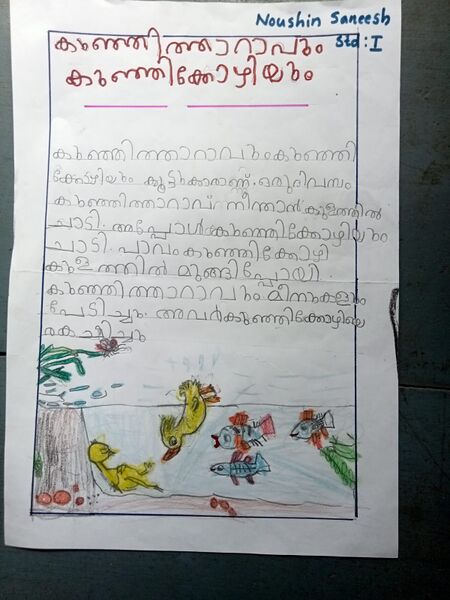 Noushin Saneesh
Std : I
കുഞ്ഞിത്താറാവും
കുഞ്ഞിക്കോഴിയും
കുഞ്ഞിത്താറാവും കുഞ്ഞി
ക്കോഴിയും കൂട്ടുകാരാണ്. ഒരു ദിവസം
കുഞ്ഞിത്താറാവ് നീന്താൻ കുളത്തിൽ
ചാടി. അപ്പോൾ കുഞ്ഞിക്കോഴിയും
ചാടി. പാവം കുഞ്ഞിക്കോഴി
കുളത്തിൽ മുങ്ങിപ്പോയി.
കുഞ്ഞിത്താറാവും മീനുകളും
പേടിച്ചു. അവർ കുഞ്ഞിക്കോഴിയെ
രക്ഷിച്ചു